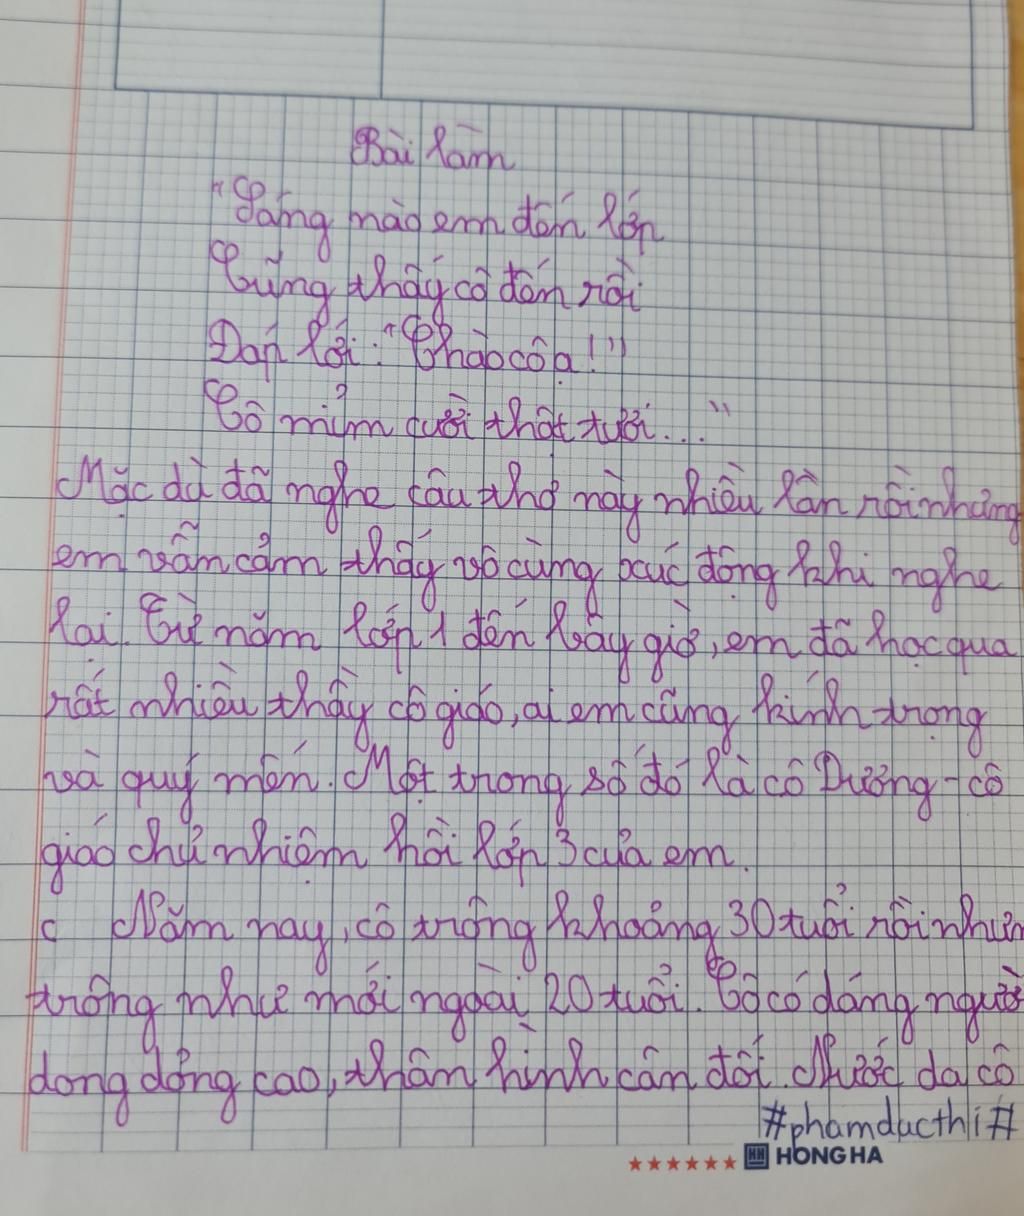 Bài làm
"Sáng nào em đến lớp
Cũng thấy cô đến rồi
Đáp lời: "Chào cô ạ!"
Cô mỉm cười thật tươi..."
Mặc dù đã nghe câu thơ này nhiều lần rồi nhưng
em vẫn cảm thấy vô cùng xúc động khi nghe
lại. Từ năm lớp 1 đến bây giờ, em đã học qua
rất nhiều thầy cô giáo, ai em cũng kính trọng
và quý mến. Một trong số đó là cô Dương - cô
giáo chủ nhiệm hồi lớp 3 của em.
c Năm nay, cô trông khoảng 30 tuổi rồi nhưn
trông như mới ngoài 20 tuổi. Cô có dáng người
dong dỏng cao, thân hình cân đối. Nước da cô
#phamducthi#
★★★★★★ HH HONG HA